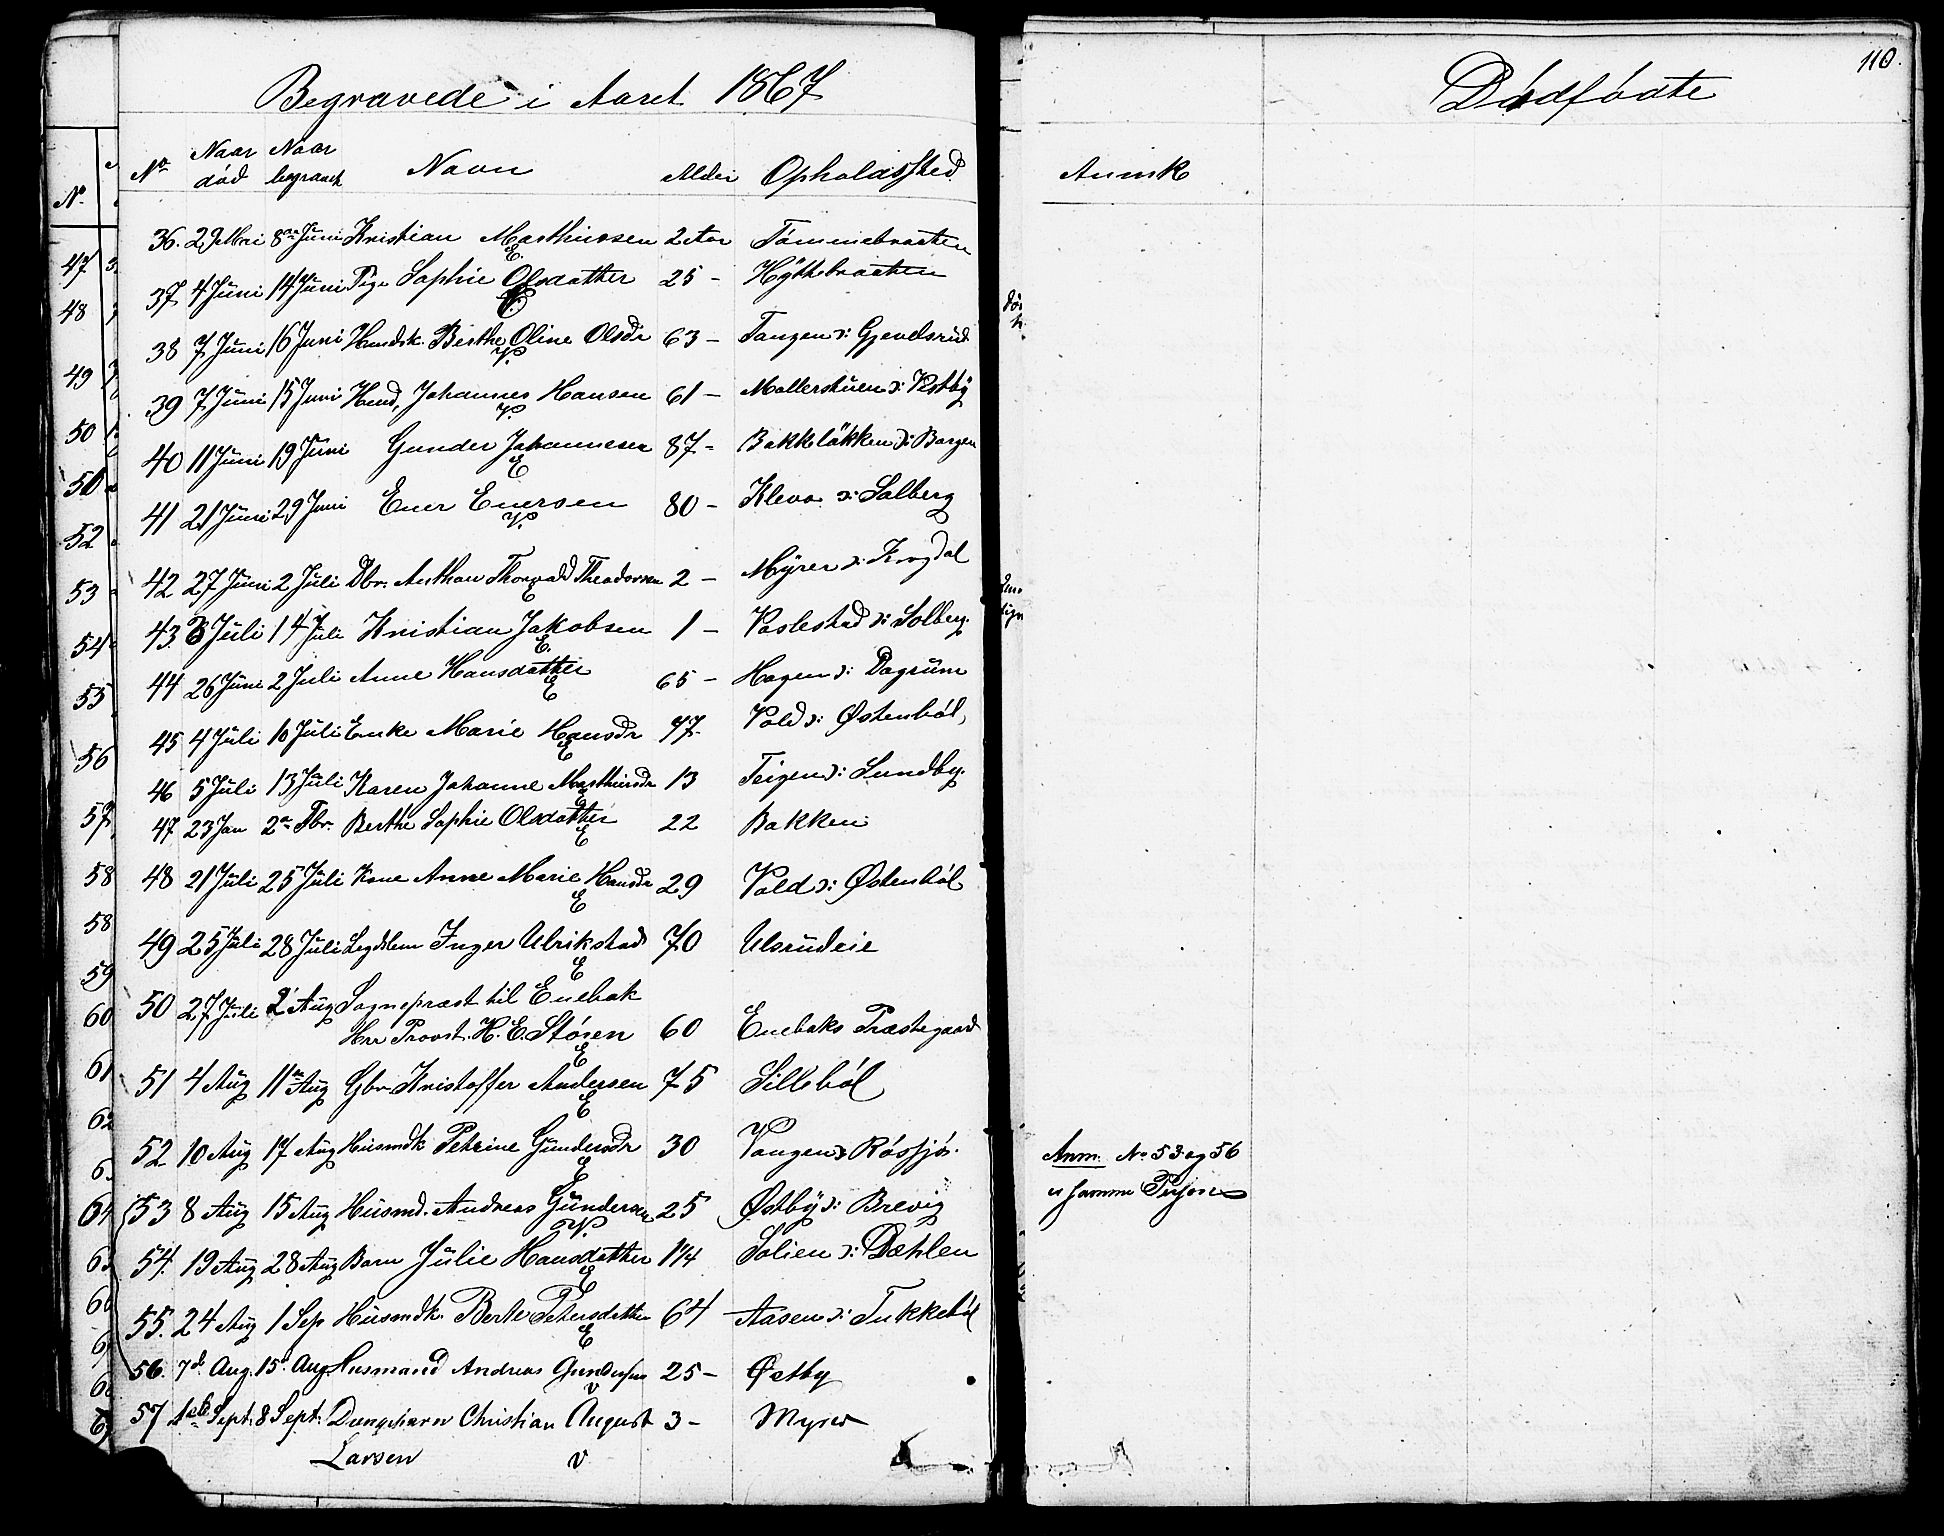 Begravede i Aaret 1867
No Naar død Naar begravet Navn Alder Opholdssted
36. 29 Mai 8de Juni Kristian Marthinssen 2 Aar Tømmebraaten
E.
37 4 Juni 14 Juni Pige Sophie Olsdatter 25 - Hyttebraaten
E.
38 7 Juni 16 Juni Husmdsk. Berthe Oline Olsdr 63 - Tangen o: Gjevelsrud
V.
39 7 Juni 15 Juni Husmd, Johannes Hansen 61 - Mallerstuen o: Vestby
V.
40 11 Juni 19 Juni Gunder Johannesen 87 - Bakkløkken o: Bargen
E
41 21 Juni 29 Juni Ener Enersen 80 - Kleva o: Solberg
V.
42 27 Juni 2 Juli Dbr. Anthon Thorvald Theodorsen 2 - Myrer o: Krogdal
E
43. 8 Juli 14 Juli Kristian Jakobsen 1 - Vaslestad o: Solberg.
E.
44 26 Juni 2 Juli Anne Hansdatter 65 - Hagen o: Dagrum
E
45 4 Juli 10 Juli Enke Marie Hansdr 77. Vold o: Østenbøl,
E
46 5 Juli 13 Juli Karen Johanne Marthinsdr 13 Teigen o: Lundby.
E
47 23 Jan 2en Fbr. Berthe Sophie Olsdatter 22 Bakken
E
48 21 Juli 25 Juli Kone Anne Marie Hansdr 29 Vold o: Østenbøl
E
49 25 Juli 28 Juli Legdslem Inger Ulrikstad 70 Ulsrudeie
E
50 27 Juli 2 Aug Sognepræst til Enebak
Hrr Provst. H. E. Stösen 60 Enebaks Præstegaard
E
51 4 Aug 11te Aug Gbr Kristoffer Andersen 75 Lillebøl
E
52 10 Aug 17 Aug Husmdk Petrine Gundersdr 30 Vangen o: Røssjø.
E
53 8 Aug 15 Aug Husmd. Andreas Gundersen 25 Østby o: Brevig
V.
54. 19 Aug 28 Aug Barn Julie Hansdatter 1 1/4 Solien o: Dæhlen
E
55. 24 Aug 1 Sep Husmdk. Berte Petersdatter 64 Aasen o: Tukkebøl
E
56. 7de Aug. 15de Aug. Husmand Andreas Gundersen 25 - Østby
V
57 1ste Sept: 8 Sept: Drengebarn Christian August 3 - Myrer
Larsen V
No
47
48
49
50
50
52
53
54
55
56
57
58
58
59
60
61
62
Dødfødte
110.
Anmk
Anm. No 53 og 56
er samme Person